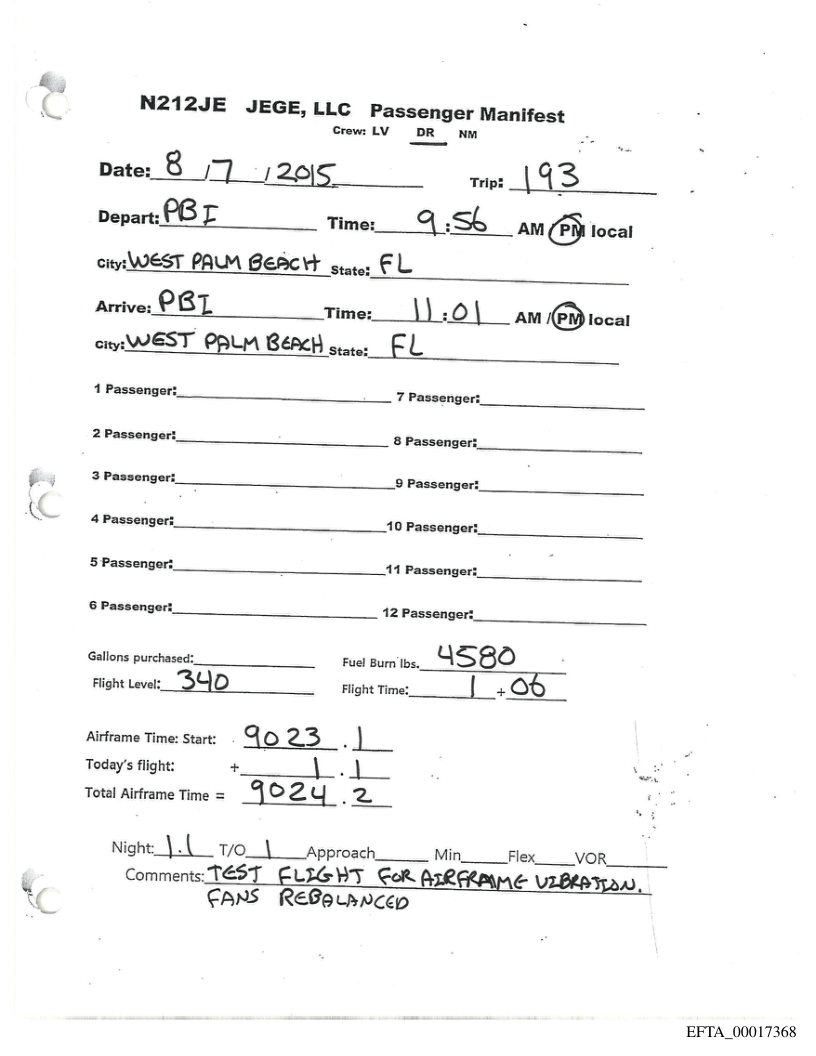 N212JE JEGE, LLC Passenger Manifest
Crew: LV DR NM
Date: 8 / 7 / 2015 Trip: 193
Depart: PBI Time: 9:56 AM / PM local
City: WEST PALM BEACH State: FL
Arrive: PBI Time: 11:01 AM / PM local
City: WEST PALM BEACH State: FL
1 Passenger: 7 Passenger:
2 Passenger: 8 Passenger:
3 Passenger: 9 Passenger:
4 Passenger: 10 Passenger:
5 Passenger: 11 Passenger:
6 Passenger: 12 Passenger:
Gallons purchased: Fuel Burn lbs. 4580
Flight Level: 340 Flight Time: 1 + 06
Airframe Time: Start: 9023.1
Today's flight: + 1.1
Total Airframe Time = 9024.2
Night: 1.1 T/O 1 Approach Min Flex VOR
Comments: TEST FLIGHT FOR AIRFRAME VIBRATION.
FANS REBALANCED
EFTA_00017368